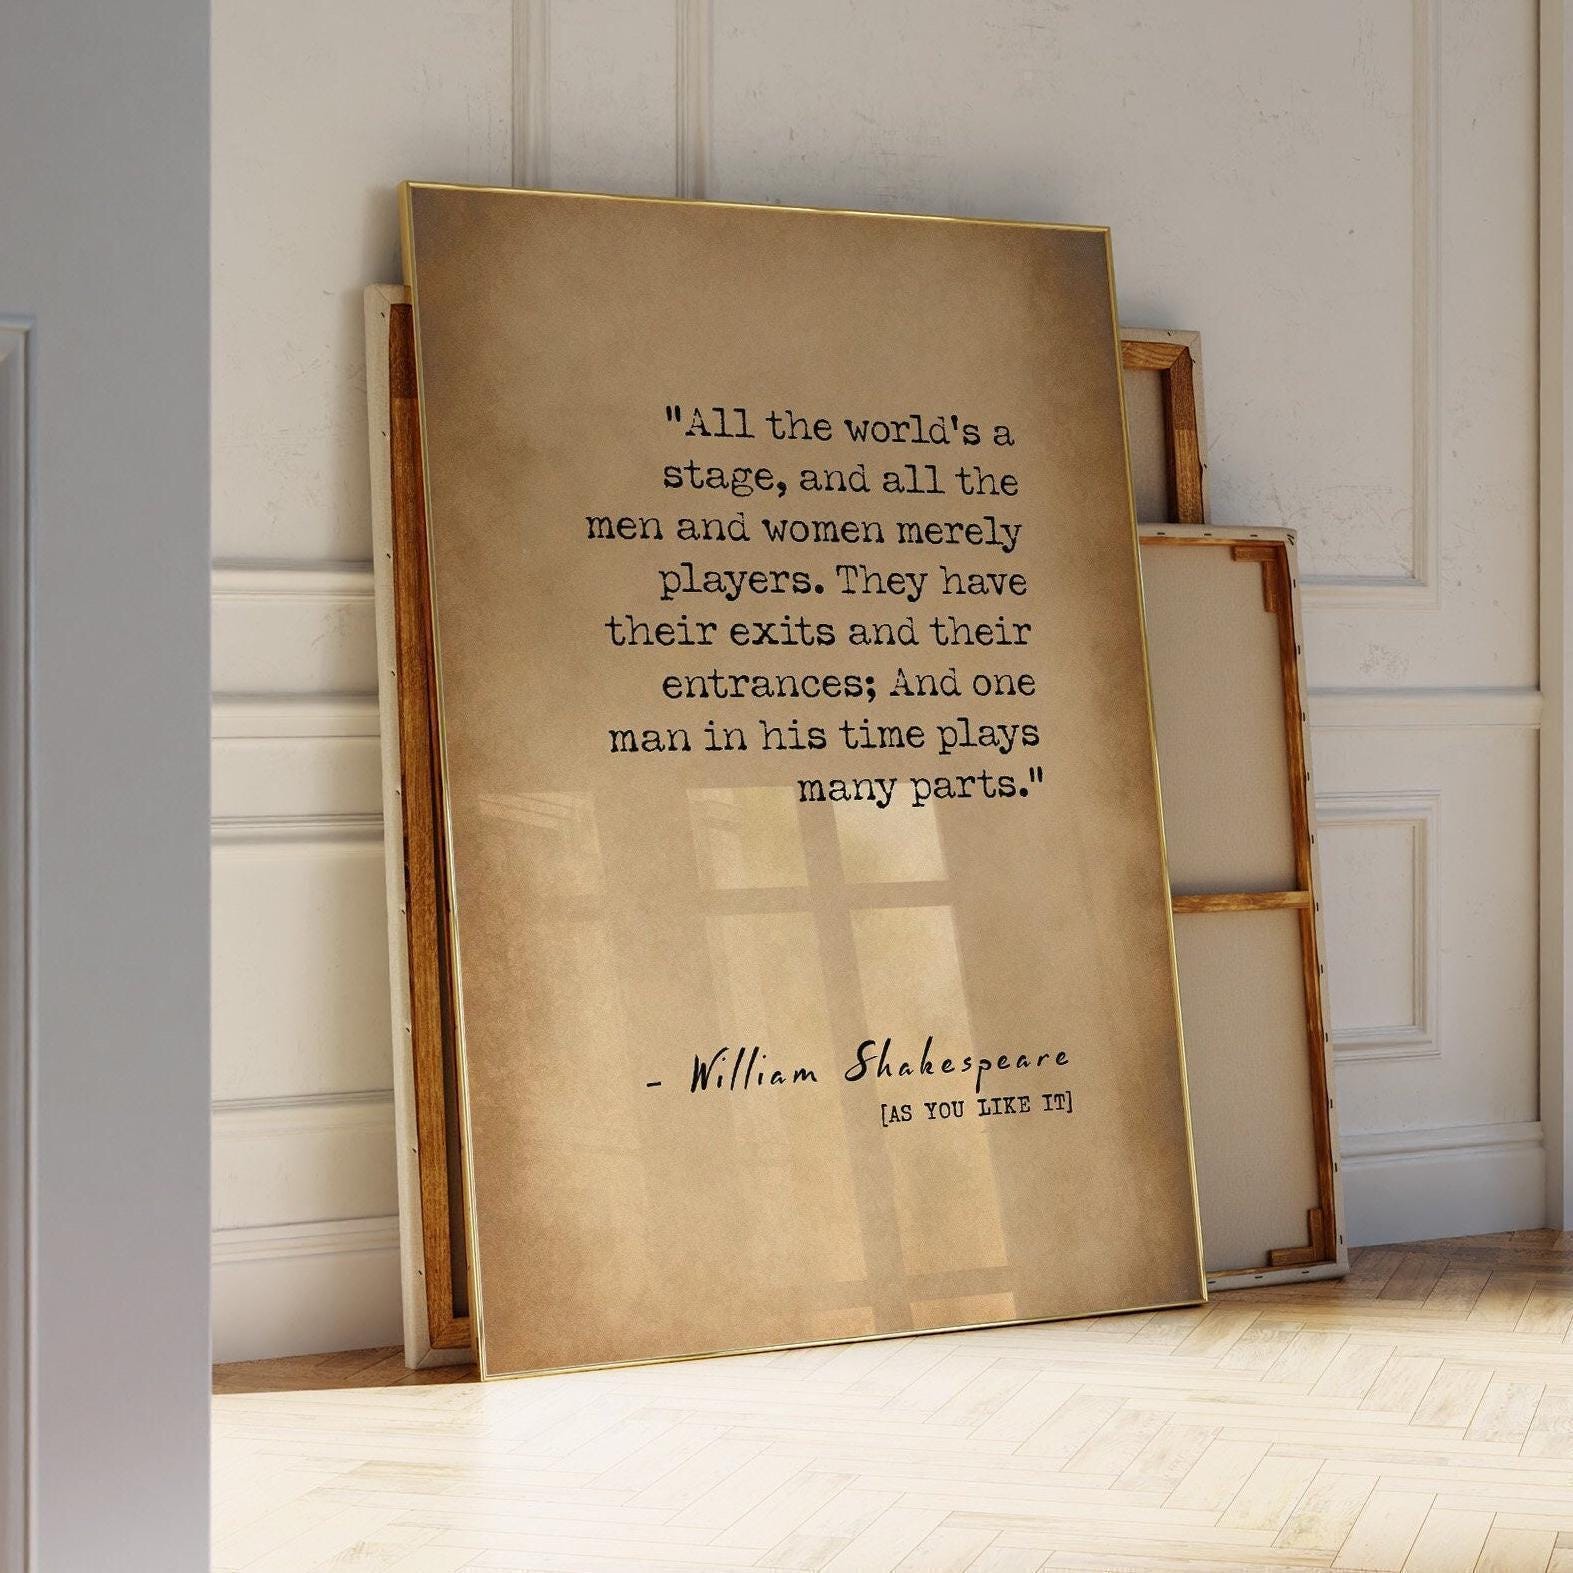 "All the world's a
stage, and all the
men and women merely
players. They have
their exits and their
entrances; And one
man in his time plays
many parts."
- William Shakespeare
[AS YOU LIKE IT]